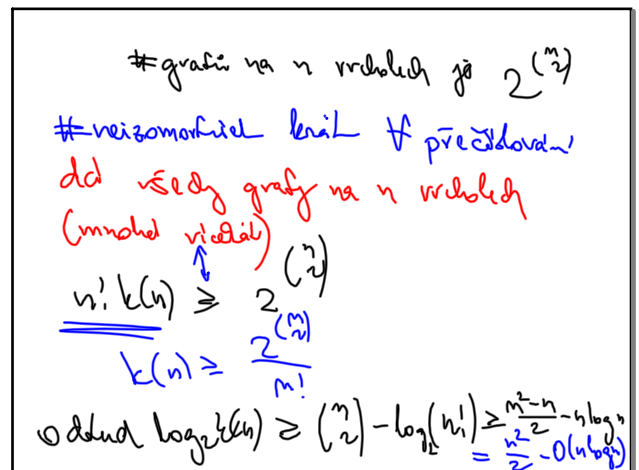 # grafů na n vrcholech je 2^(n 2)
# neizomorfních krát ∀ přečíslování
dá všechy grafy na n vrcholech
(mnohé vícekrát)
n! k(n) ≥ 2^(n 2)
k(n) ≥ 2^(n 2) / n!
odtud log₂ k(n) ≥ (n 2) - log₂(n!) ≥ (n²-n)/2 - n log n
= n²/2 - O(n log n)